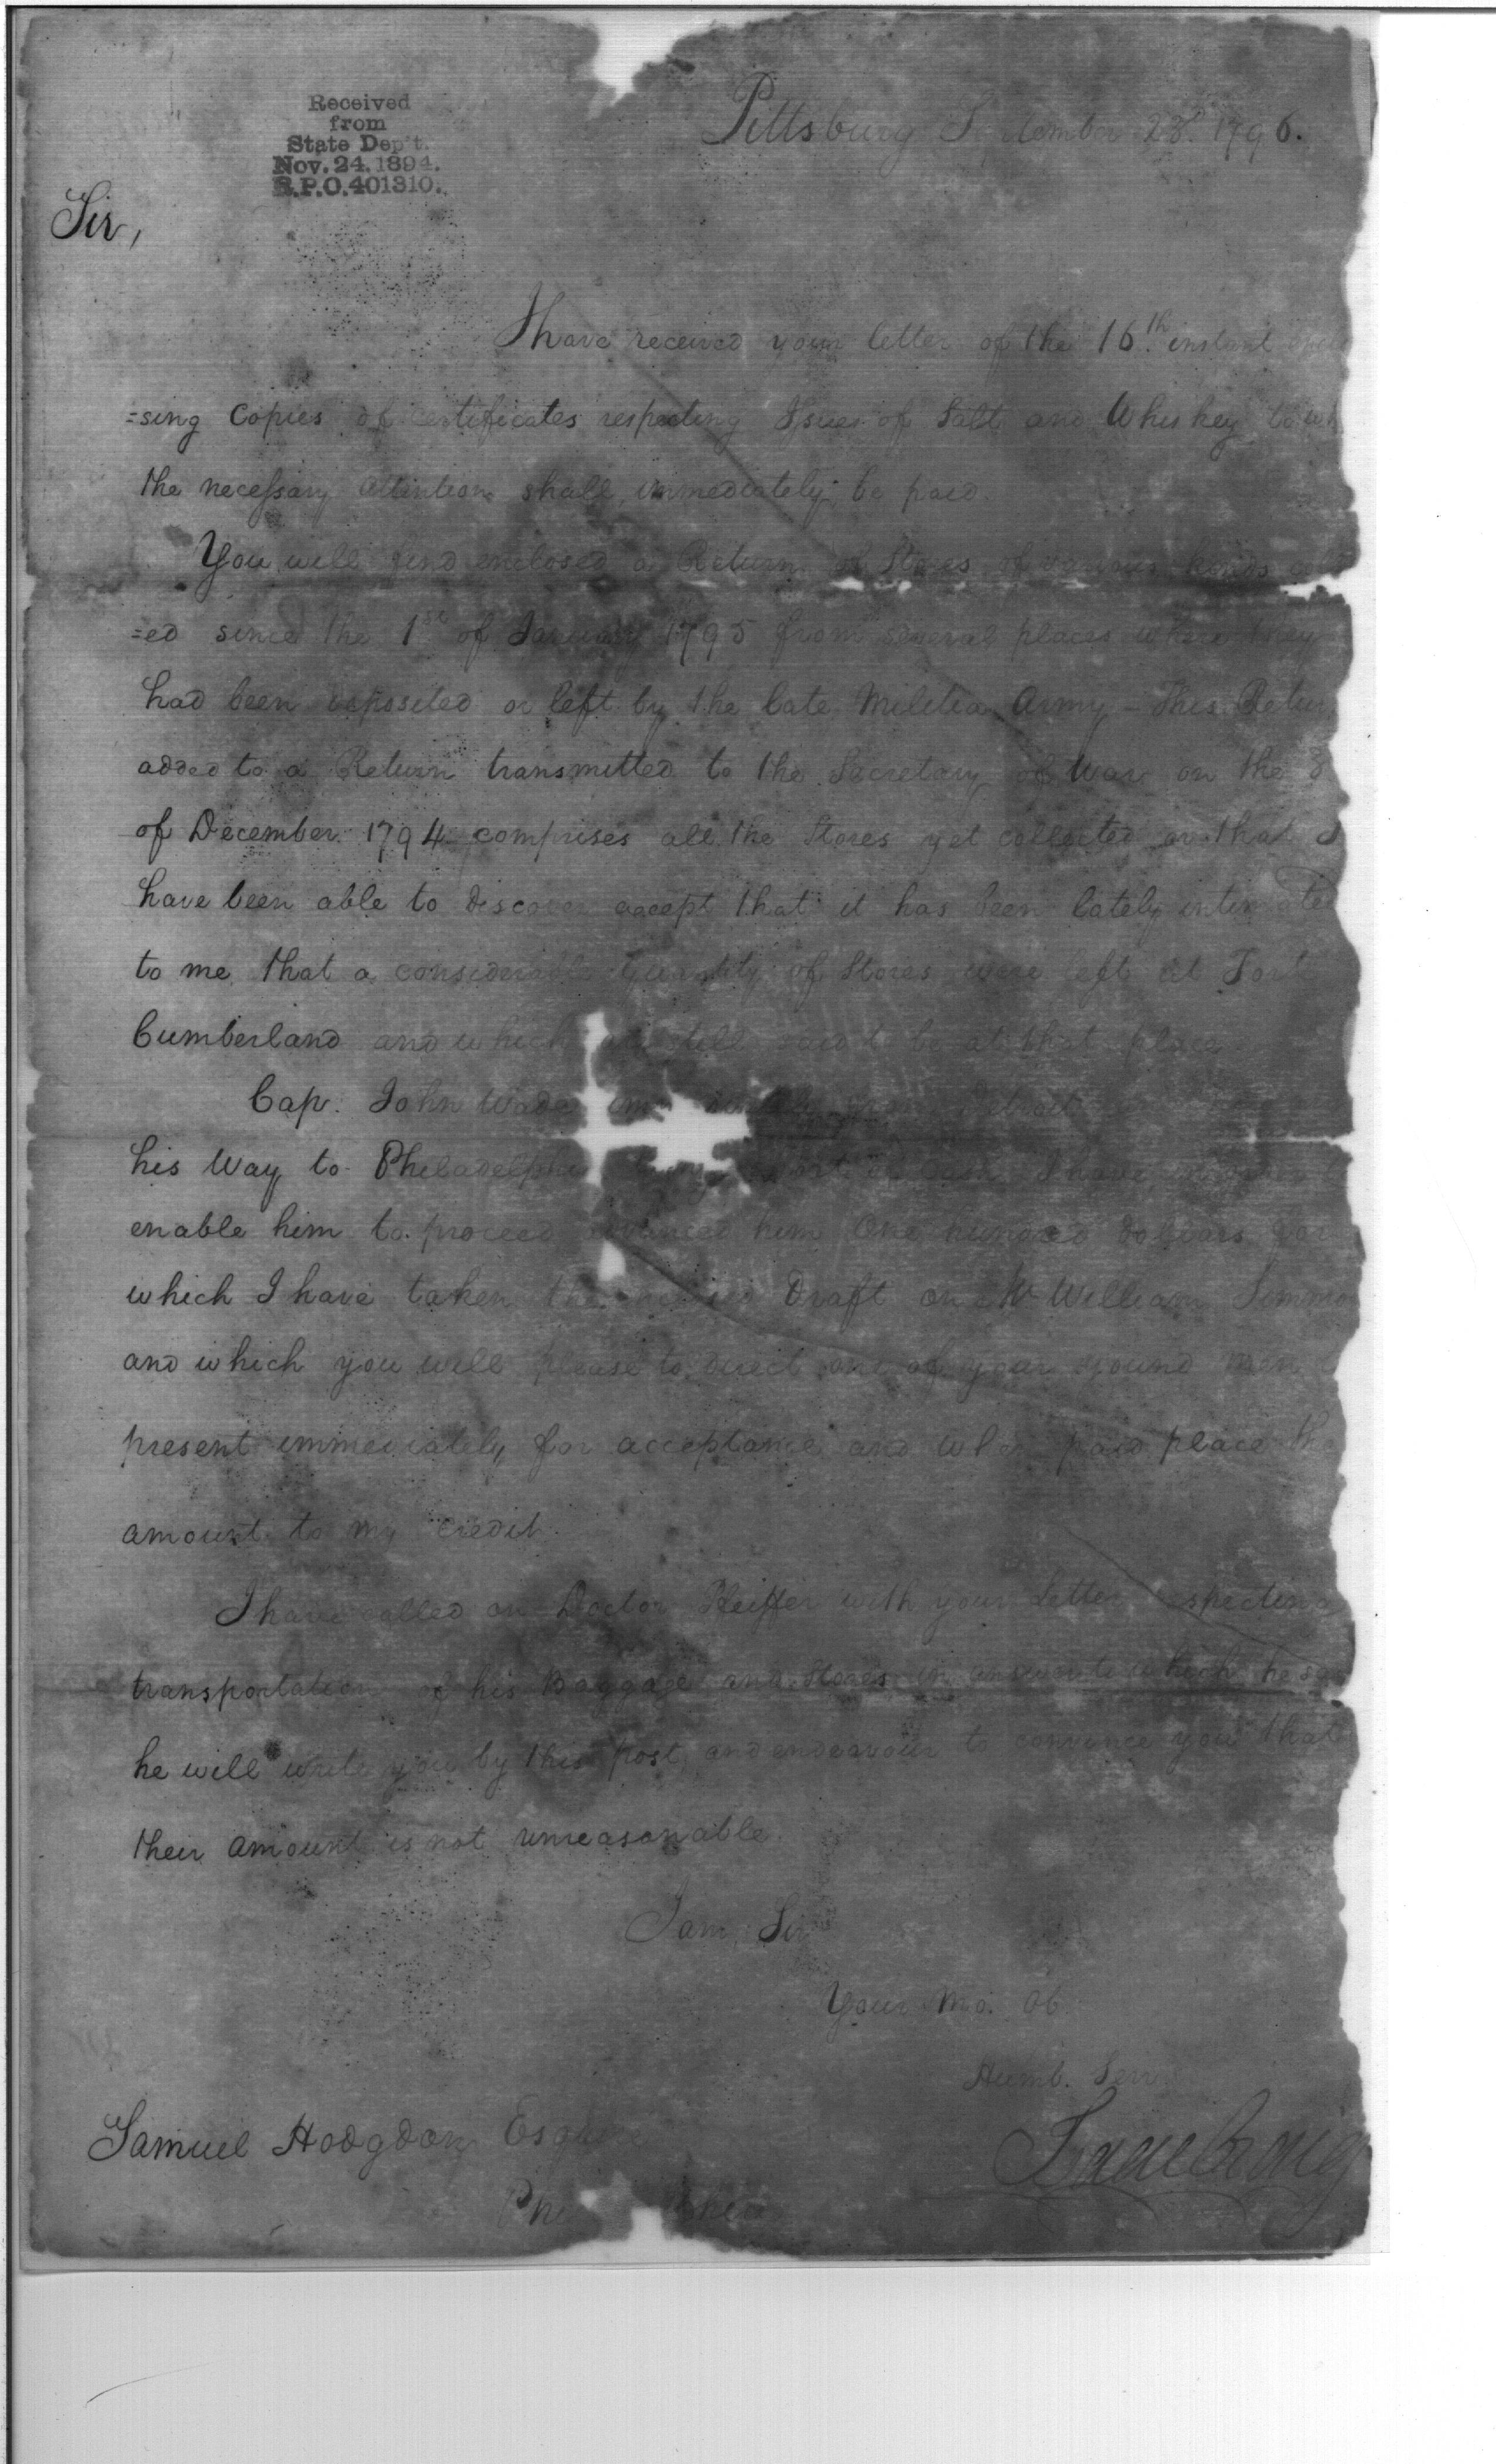 Received
from
State Dep't.
Nov. 24. 1894.
S.P.O. 401310.
Pittsburg S tember 23d. 1796.
Sir,
I have received your letter of the 16th. instant
=sing Copies of certificates respecting Issues of Salt and Whiskey to wh
the necessary attention shall, immediately, be paid.
You will find enclosed a Return of Stores of various kinds
=ed since the 1st of January 1795 from several places where they
had been deposited or left by the late Militia Army - This Retur
added to a Return transmitted to the Secretary of War on the 8
of December 1794 comprises all the Stores yet collected or that I
have been able to discover except that it has been lately intimated
to me that a considerable Quantity of Stores were left at Fort
Cumberland and which are still said to be at that place
Cap. John Wade
his Way to Philadelphia being short of cash I have
enable him to proceed advanced him One hundred dollars for
which I have taken the enclosed Draft on Mr William Simmo
and which you will please to direct one of your yound men
present immediately for acceptance and when paid place the
amount to my credit.
I have called on Doctor Pfeiffer with your Letter respecting
transportation of his Baggage and Stores in answer to which he say
he will write you by this post, and endeavour to convince you that
their amount is not unreasonable.
I am, Sir
Your Mo. Ob
Humb. Serv
Samuel Hodgdon Esquire
Isaac Craig
Phi lphia